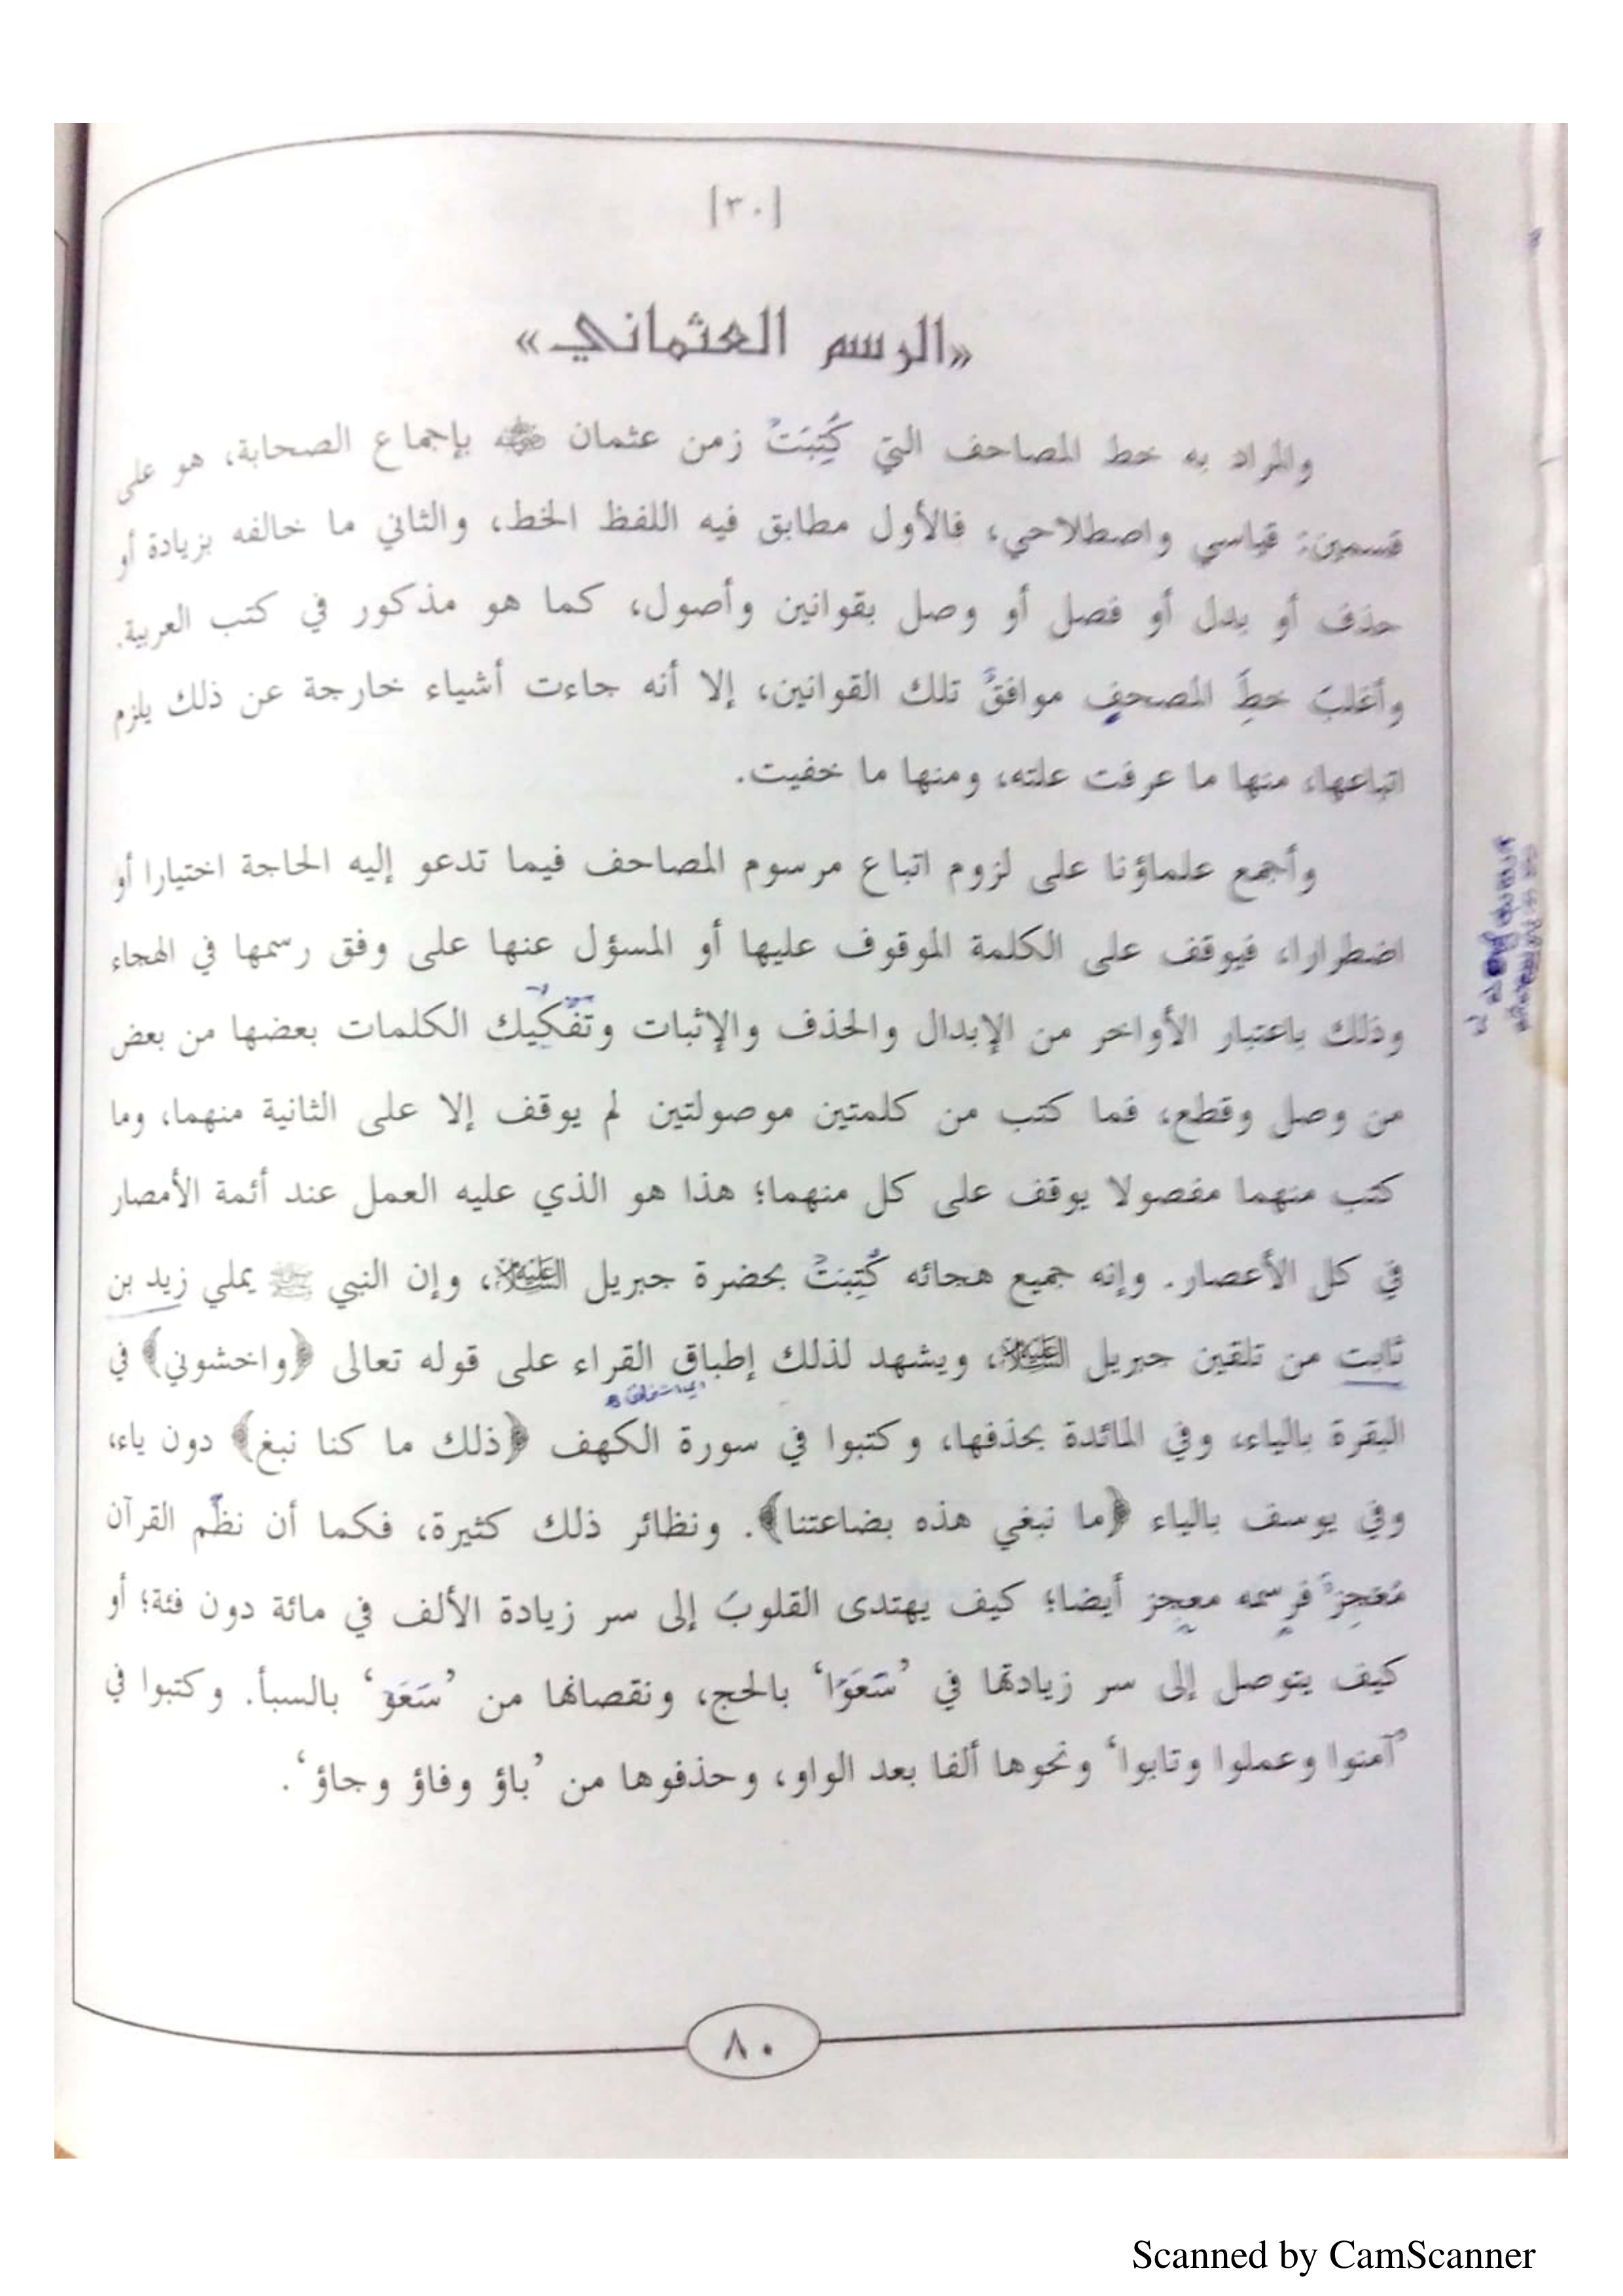 [٣٠]
«الرسم العثماني»
والمراد به خط المصاحف التي كُتِبَتْ زمن عثمان ﷺ بإجماع الصحابة، هو على
قسمين: قياسي واصطلاحي، فالأول مطابق فيه اللفظ الخط، والثاني ما خالفه بزيادة أو
حذف أو بدل أو فصل أو وصل بقوانين وأصول، كما هو مذكور في كتب العربية.
وأغلبُ خطِّ المصحفِ موافقٌ تلك القوانين، إلا أنه جاءت أشياء خارجة عن ذلك يلزم
اتباعها، منها ما عرفت علته، ومنها ما خفيت.
وأجمع علماؤنا على لزوم اتباع مرسوم المصاحف فيما تدعو إليه الحاجة اختيارا أو
اضطرارا، فيوقف على الكلمة الموقوف عليها أو المسؤل عنها على وفق رسمها في الهجاء
وذلك باعتبار الأواخر من الإبدال والحذف والإثبات وتَفْكِيك الكلمات بعضها من بعض
من وصل وقطع، فما كتب من كلمتين موصولتين لم يوقف إلا على الثانية منهما، وما
كتب منهما مفصولا يوقف على كل منهما؛ هذا هو الذي عليه العمل عند أئمة الأمصار
في كل الأعصار. وإنه جميع هجائه كُتِبَتْ بحضرة جبريل عليه السلام، وإن النبي ﷺ يملي زيد بن
ثابت من تلقين جبريل عليه السلام، ويشهد لذلك إطباق القراء على قوله تعالى ﴿واخشوني﴾ في
البقرة بالياء، وفي المائدة بحذفها، وكتبوا في سورة الكهف ﴿ذلك ما كنا نبغ﴾ دون ياء،
وفي يوسف بالياء ﴿ما نبغي هذه بضاعتنا﴾. ونظائر ذلك كثيرة، فكما أن نظْم القرآن
مُعْجِزٌ فرسمه معجِز أيضا؛ كيف يهتدى القلوبُ إلى سر زيادة الألف في مائة دون فئة؛ أو
كيف يتوصل إلى سر زيادتها في ’سَعَوْا‘ بالحج، ونقصانها من ’سَعَوْ‘ بالسبأ. وكتبوا في
’آمنوا وعملوا وتابوا‘ ونحوها ألفا بعد الواو، وحذفوها من ’باؤ وفاؤ وجاؤ‘.
٨٠
Scanned by CamScanner